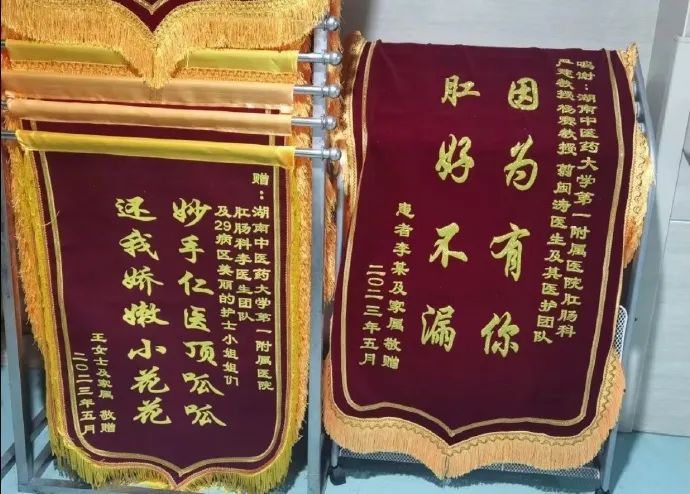 赠：湖南中医药大学第一附属医院
肛肠科李医生团队
及29病区美丽的护士小姐姐们
妙手仁医顶呱呱
还我娇嫩小花花
王女士及家属 敬赠
二〇二三年五月
鸣谢：湖南中医药大学第一附属医院肛肠科
严建教授 杨赛教授 翦闽涛医生及其医护团队
因为有你
肛好不漏
患者李某及家属 敬赠
二〇二三年五月